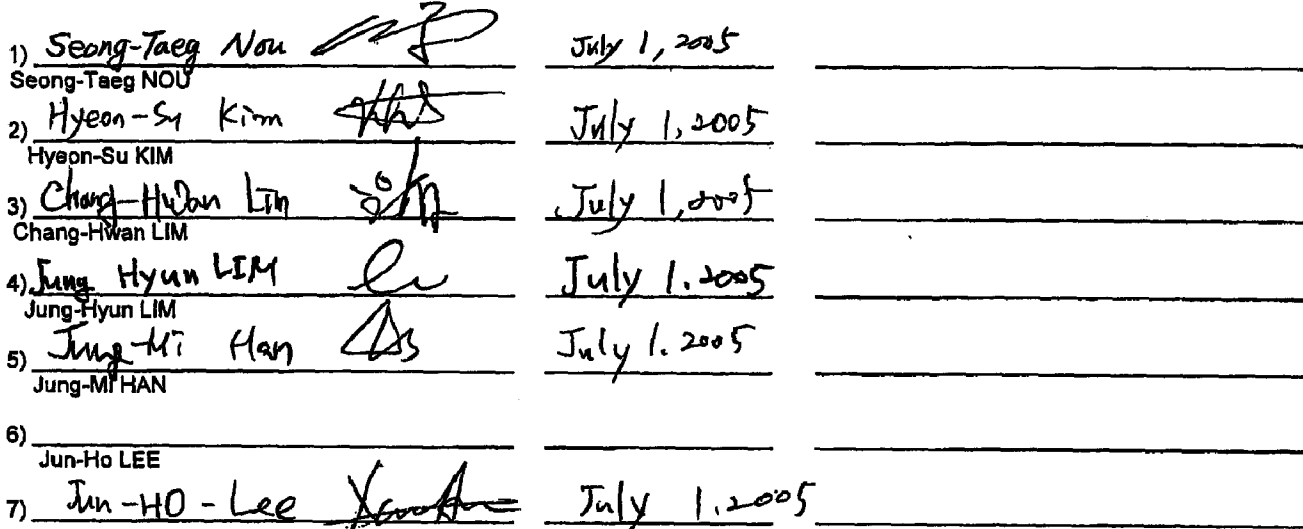 1) Seong-Taeg Nou July 1, 2005
Seong-Taeg NOU
2) Hyeon-Su Kim July 1, 2005
Hyeon-Su KIM
3) Chang-Hwan Lim July 1, 2005
Chang-Hwan LIM
4) Jung Hyun LIM July 1. 2005
Jung-Hyun LIM
5) Jung-Mi Han July 1. 2005
Jung-Mi HAN
6)
Jun-Ho LEE
7) Jun-HO-Lee July 1. 2005